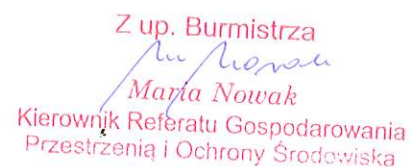 Z up. Burmistrza
M. Nowak
Maria Nowak
Kierownik Referatu Gospodarowania
Przestrzenią i Ochrony Środowiska